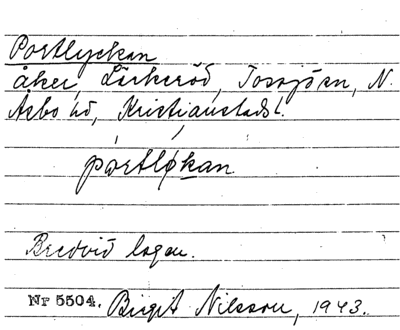 Portlyckan
åker, Lärkeröd, Tossjön, N.
Åsbo hd, Kristianstads l.
pørtløkan
Bredvid logen.
Nr 5504. Birgit Nilsson, 1943.